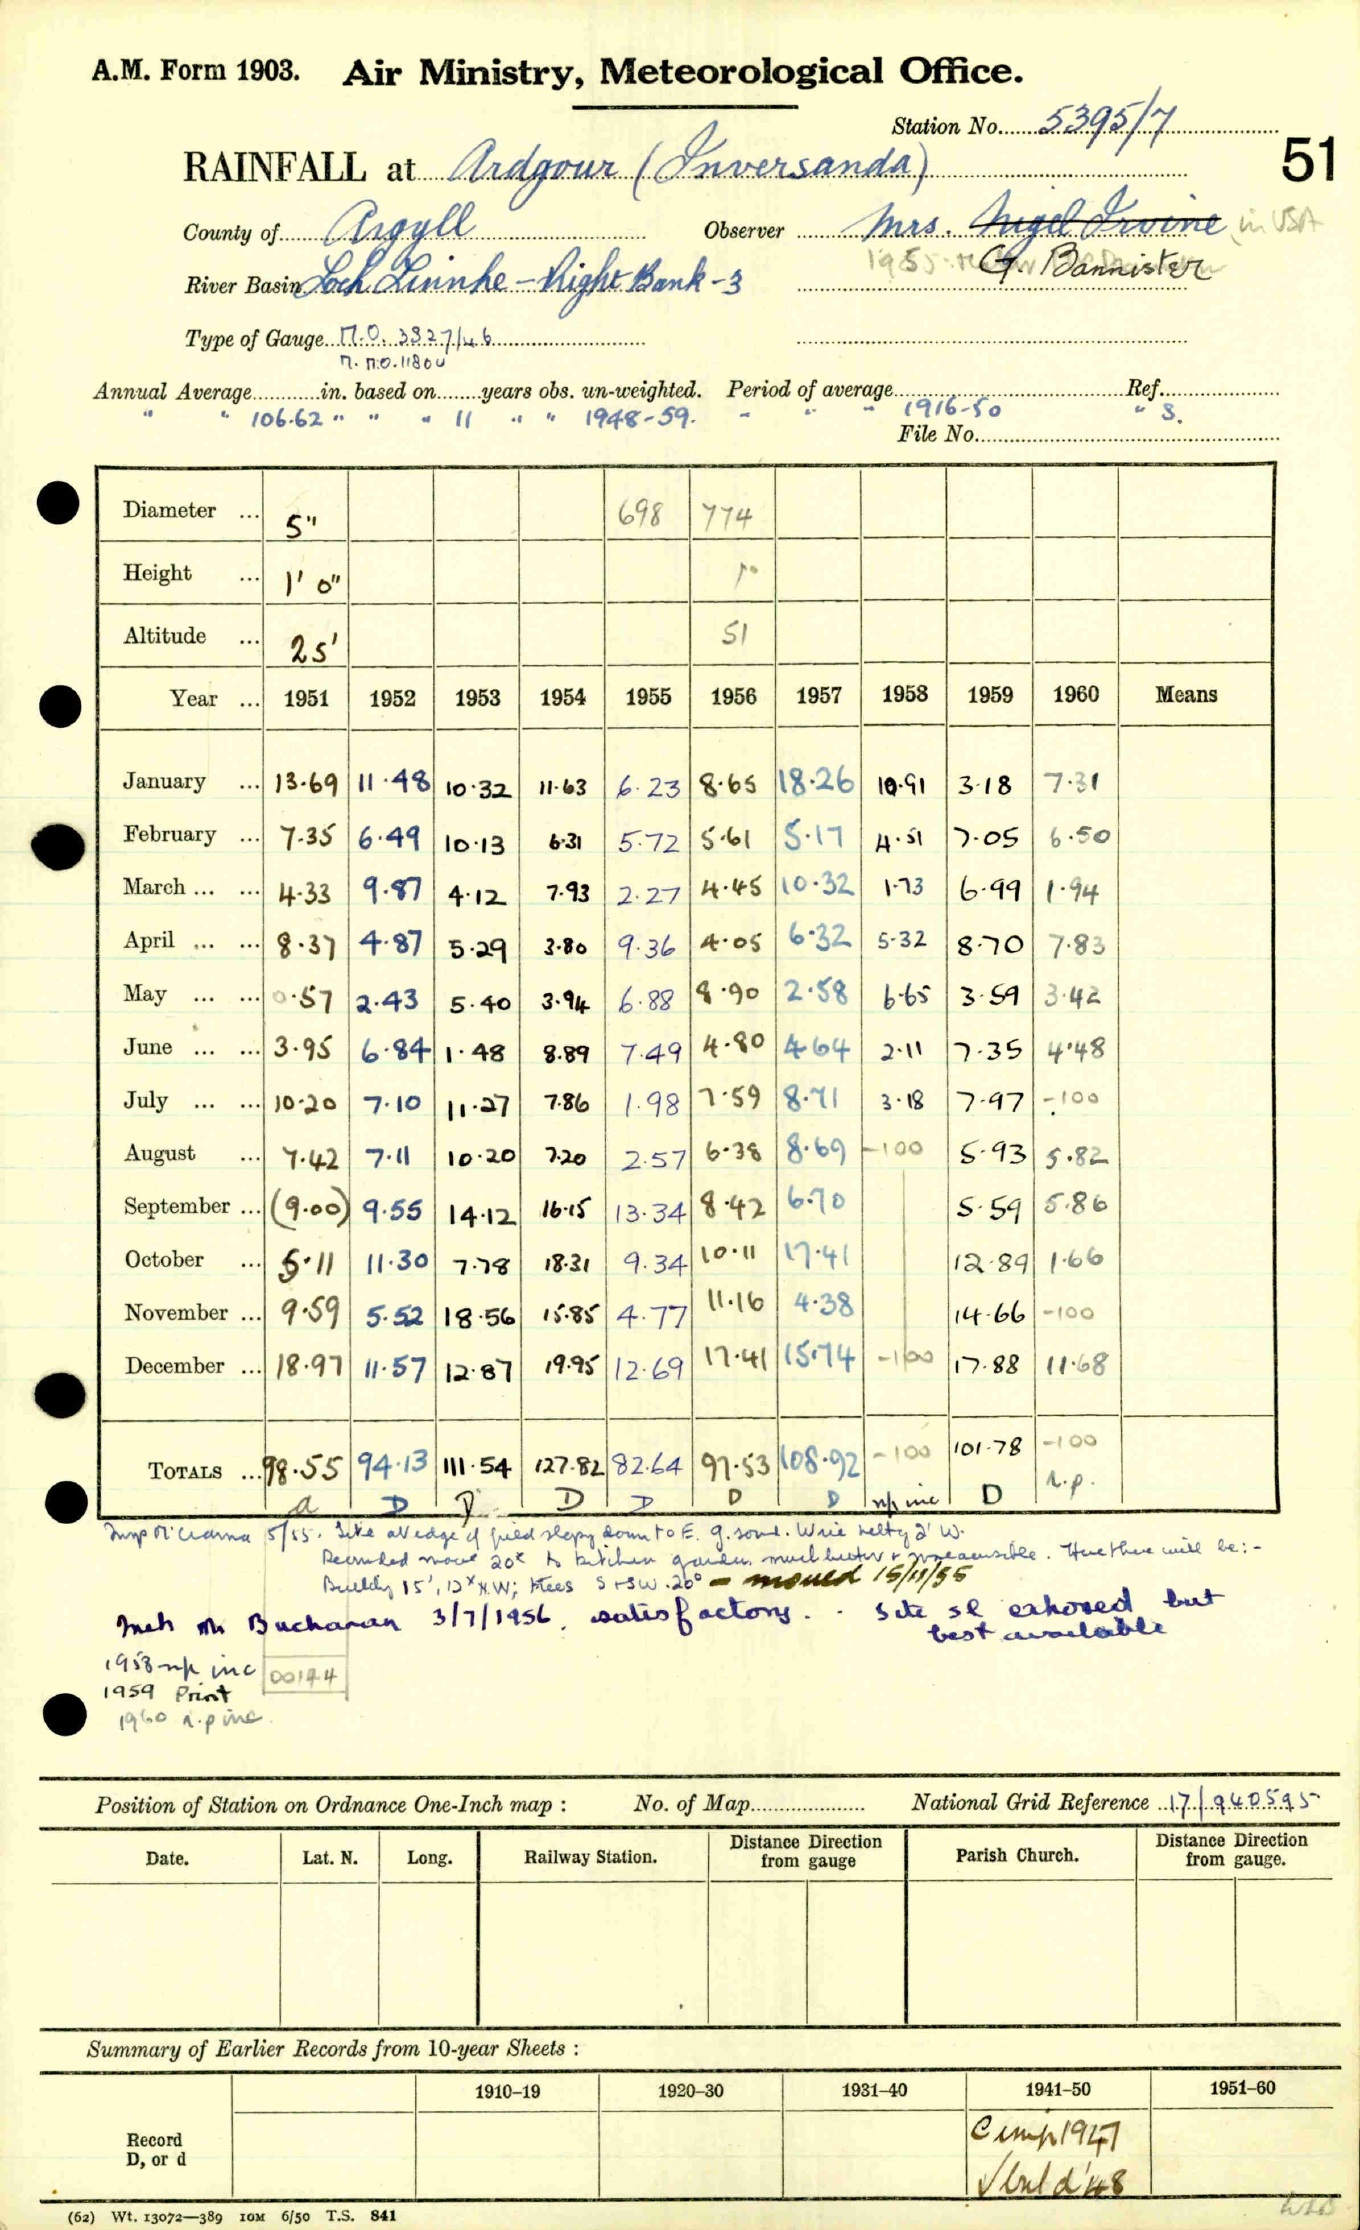 A.M. Form 1903. Air Ministry, Meteorological Office.
Station No. 5395/7
51
RAINFALL at Ardgour (Inversanda)
County of Argyll Observer Mrs. Nigel Irvine, in USA
1955 G. Bannister
River Basin Loch Linnhe - Right Bank - 3
Type of Gauge M.O. 3827/46
Annual Average in. based on years obs. un-weighted. Period of average Ref.
" " 106.62 " " " 11 " " 1948-59. " " " 1916-50 " S.
File No.
Diameter ... 5" 698 774
Height ... 1' 0"
Altitude ... 25' 51
Year ... 1951 1952 1953 1954 1955 1956 1957 1958 1959 1960 Means
January ... 13.69 11.48 10.32 11.63 6.23 8.65 18.26 10.91 3.18 7.31
February ... 7.35 6.49 10.13 6.31 5.72 5.61 5.17 4.51 7.05 6.50
March ... ... 4.33 9.87 4.12 7.93 2.27 4.45 10.32 1.73 6.99 1.94
April ... ... 8.37 4.87 5.29 3.80 9.36 4.05 6.32 5.32 8.70 7.83
May ... ... 0.57 2.43 5.40 3.94 6.88 8.90 2.58 6.65 3.59 3.42
June ... ... 3.95 6.84 1.48 8.89 7.49 4.80 4.64 2.11 7.35 4.48
July ... ... 10.20 7.10 11.27 7.86 1.98 7.59 8.71 3.18 7.97 -100
August ... 7.42 7.11 10.20 7.20 2.57 6.38 8.69 -100 5.93 5.82
September ... (9.00) 9.55 14.12 16.15 13.34 8.42 6.70 5.59 5.86
October ... 5.11 11.30 7.78 18.31 9.34 10.11 17.41 12.89 1.66
November ... 9.59 5.52 18.56 15.85 4.77 11.16 4.38 14.66 -100
December ... 18.97 11.57 12.87 19.95 12.69 17.41 15.74 -100 17.88 11.68
TOTALS ... 98.55 94.13 111.54 127.82 82.64 97.53 108.92 -100 101.78 -100
n.p.
a D D D D D D np inc D
5/55. Site at edge of field down to E. 2' W.
move 20x to kitchen garden much better + . Here there will be:-
15', 12x N.W; trees S + SW. 20° - moved 15/11/55
Buchanan 3/7/1956. satisfactory. Site sl exposed but
best available
1958 np inc 00144
1959 Print
1960 n.p inc.
Position of Station on Ordnance One-Inch map : No. of Map National Grid Reference 17/940595
Date. Lat. N. Long. Railway Station. Distance Direction from gauge Parish Church. Distance Direction from gauge.
Summary of Earlier Records from 10-year Sheets :
1910–19 1920–30 1931–40 1941–50 1951–60
Record
D, or d
1947
'48
(62) Wt. 13072—389 10M 6/50 T.S. 841